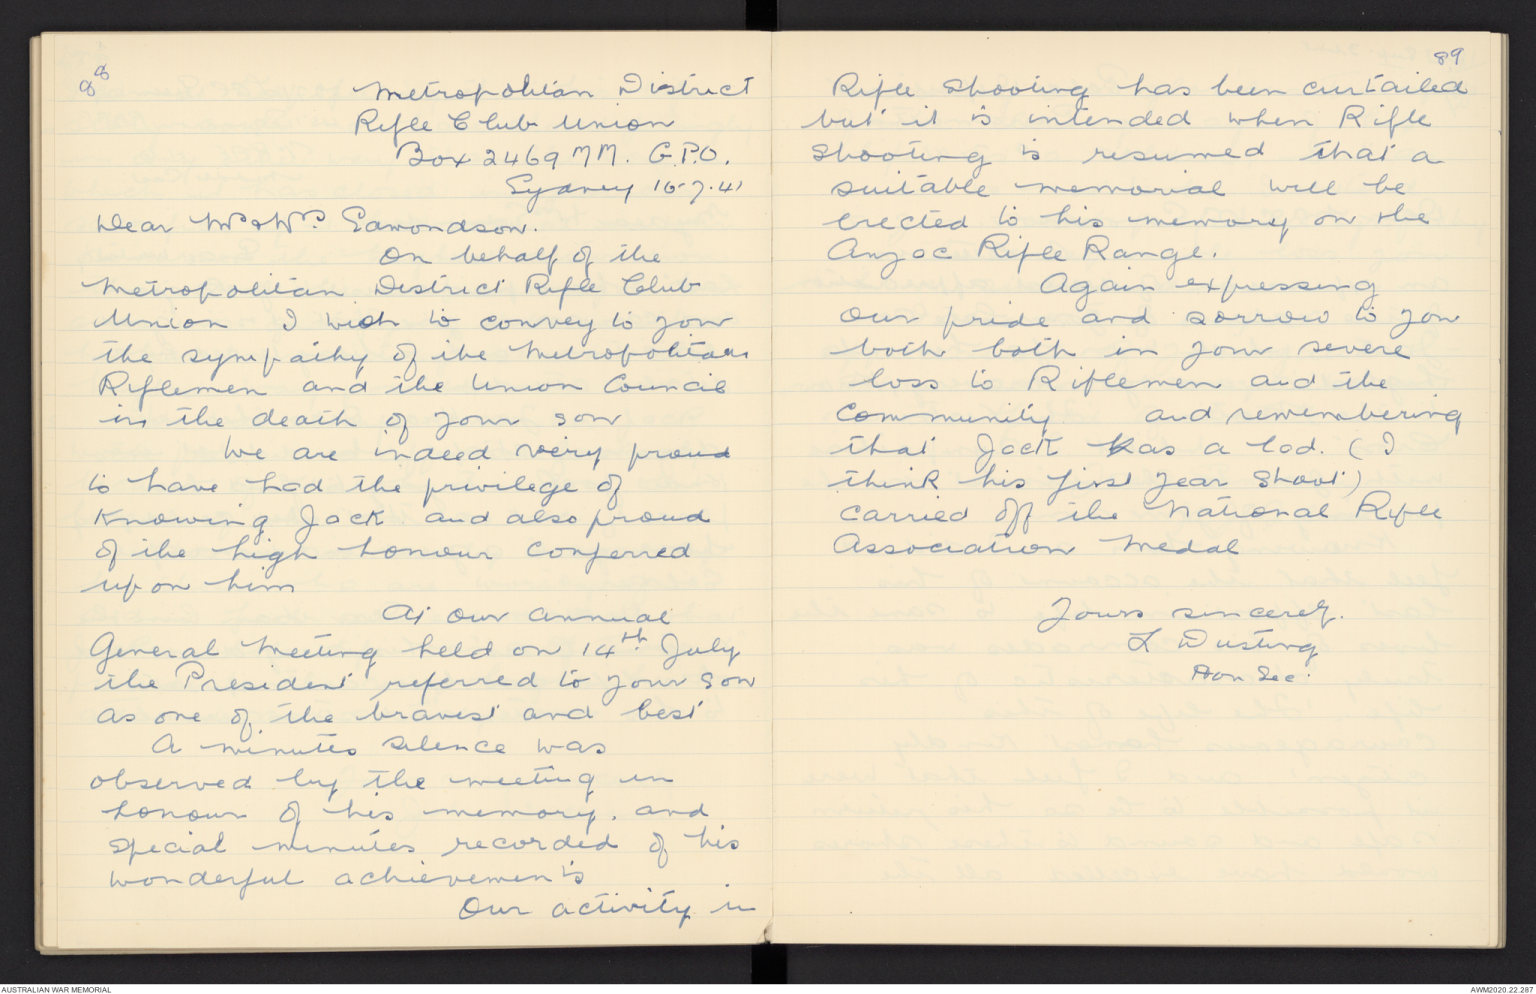 88
Metropolitan District
Rifle Club Union
Box 2469 MM. G.P.O.
Sydney 16.7.41
Dear Mr & Mrs Edmondson.
On behalf of the
Metropolitan District Rifle Club
Union I wish to convey to your
the sympathy of the Metropolitan
Riflemen and the Union Council
in the death of your son
We are indeed very proud
to have had the privilege of
Knowing Jack and also proud
of the high honour conferred
upon him
At our annual
General Meeting held on 14th July
the President referred to your son
as one of the bravest and best
A minutes silence was
observed by the meeting in
honour of his memory. and
special minutes recorded of his
wonderful achievements
Our activity in
89
Rifle shooting has been curtailed
but it is intended when Rifle
shooting is resumed that a
suitable memorial will be
erected to his memory on the
Anzac Rifle Range.
Again expressing
our pride and sorrow to you
both both in your severe
loss to Riflemen and the
community and remembering
that Jack as a lad. (I
think his first year shoot)
carried off the National Rifle
Association Medal
Yours sincerely.
L Dusting
Hon Sec.
AUSTRALIAN WAR MEMORIAL
AWM2020.22.287